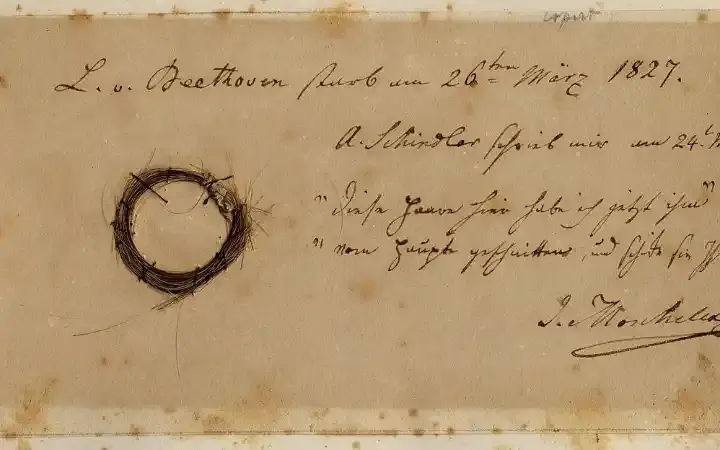 L. v. Beethoven starb am 26ten März 1827.
A. Schindler schrieb mir am 24.
"Diese Haare hier habe ich jetzt ihm"
"vom Haupte geschnitten, und schicke sie
I. Moscheles